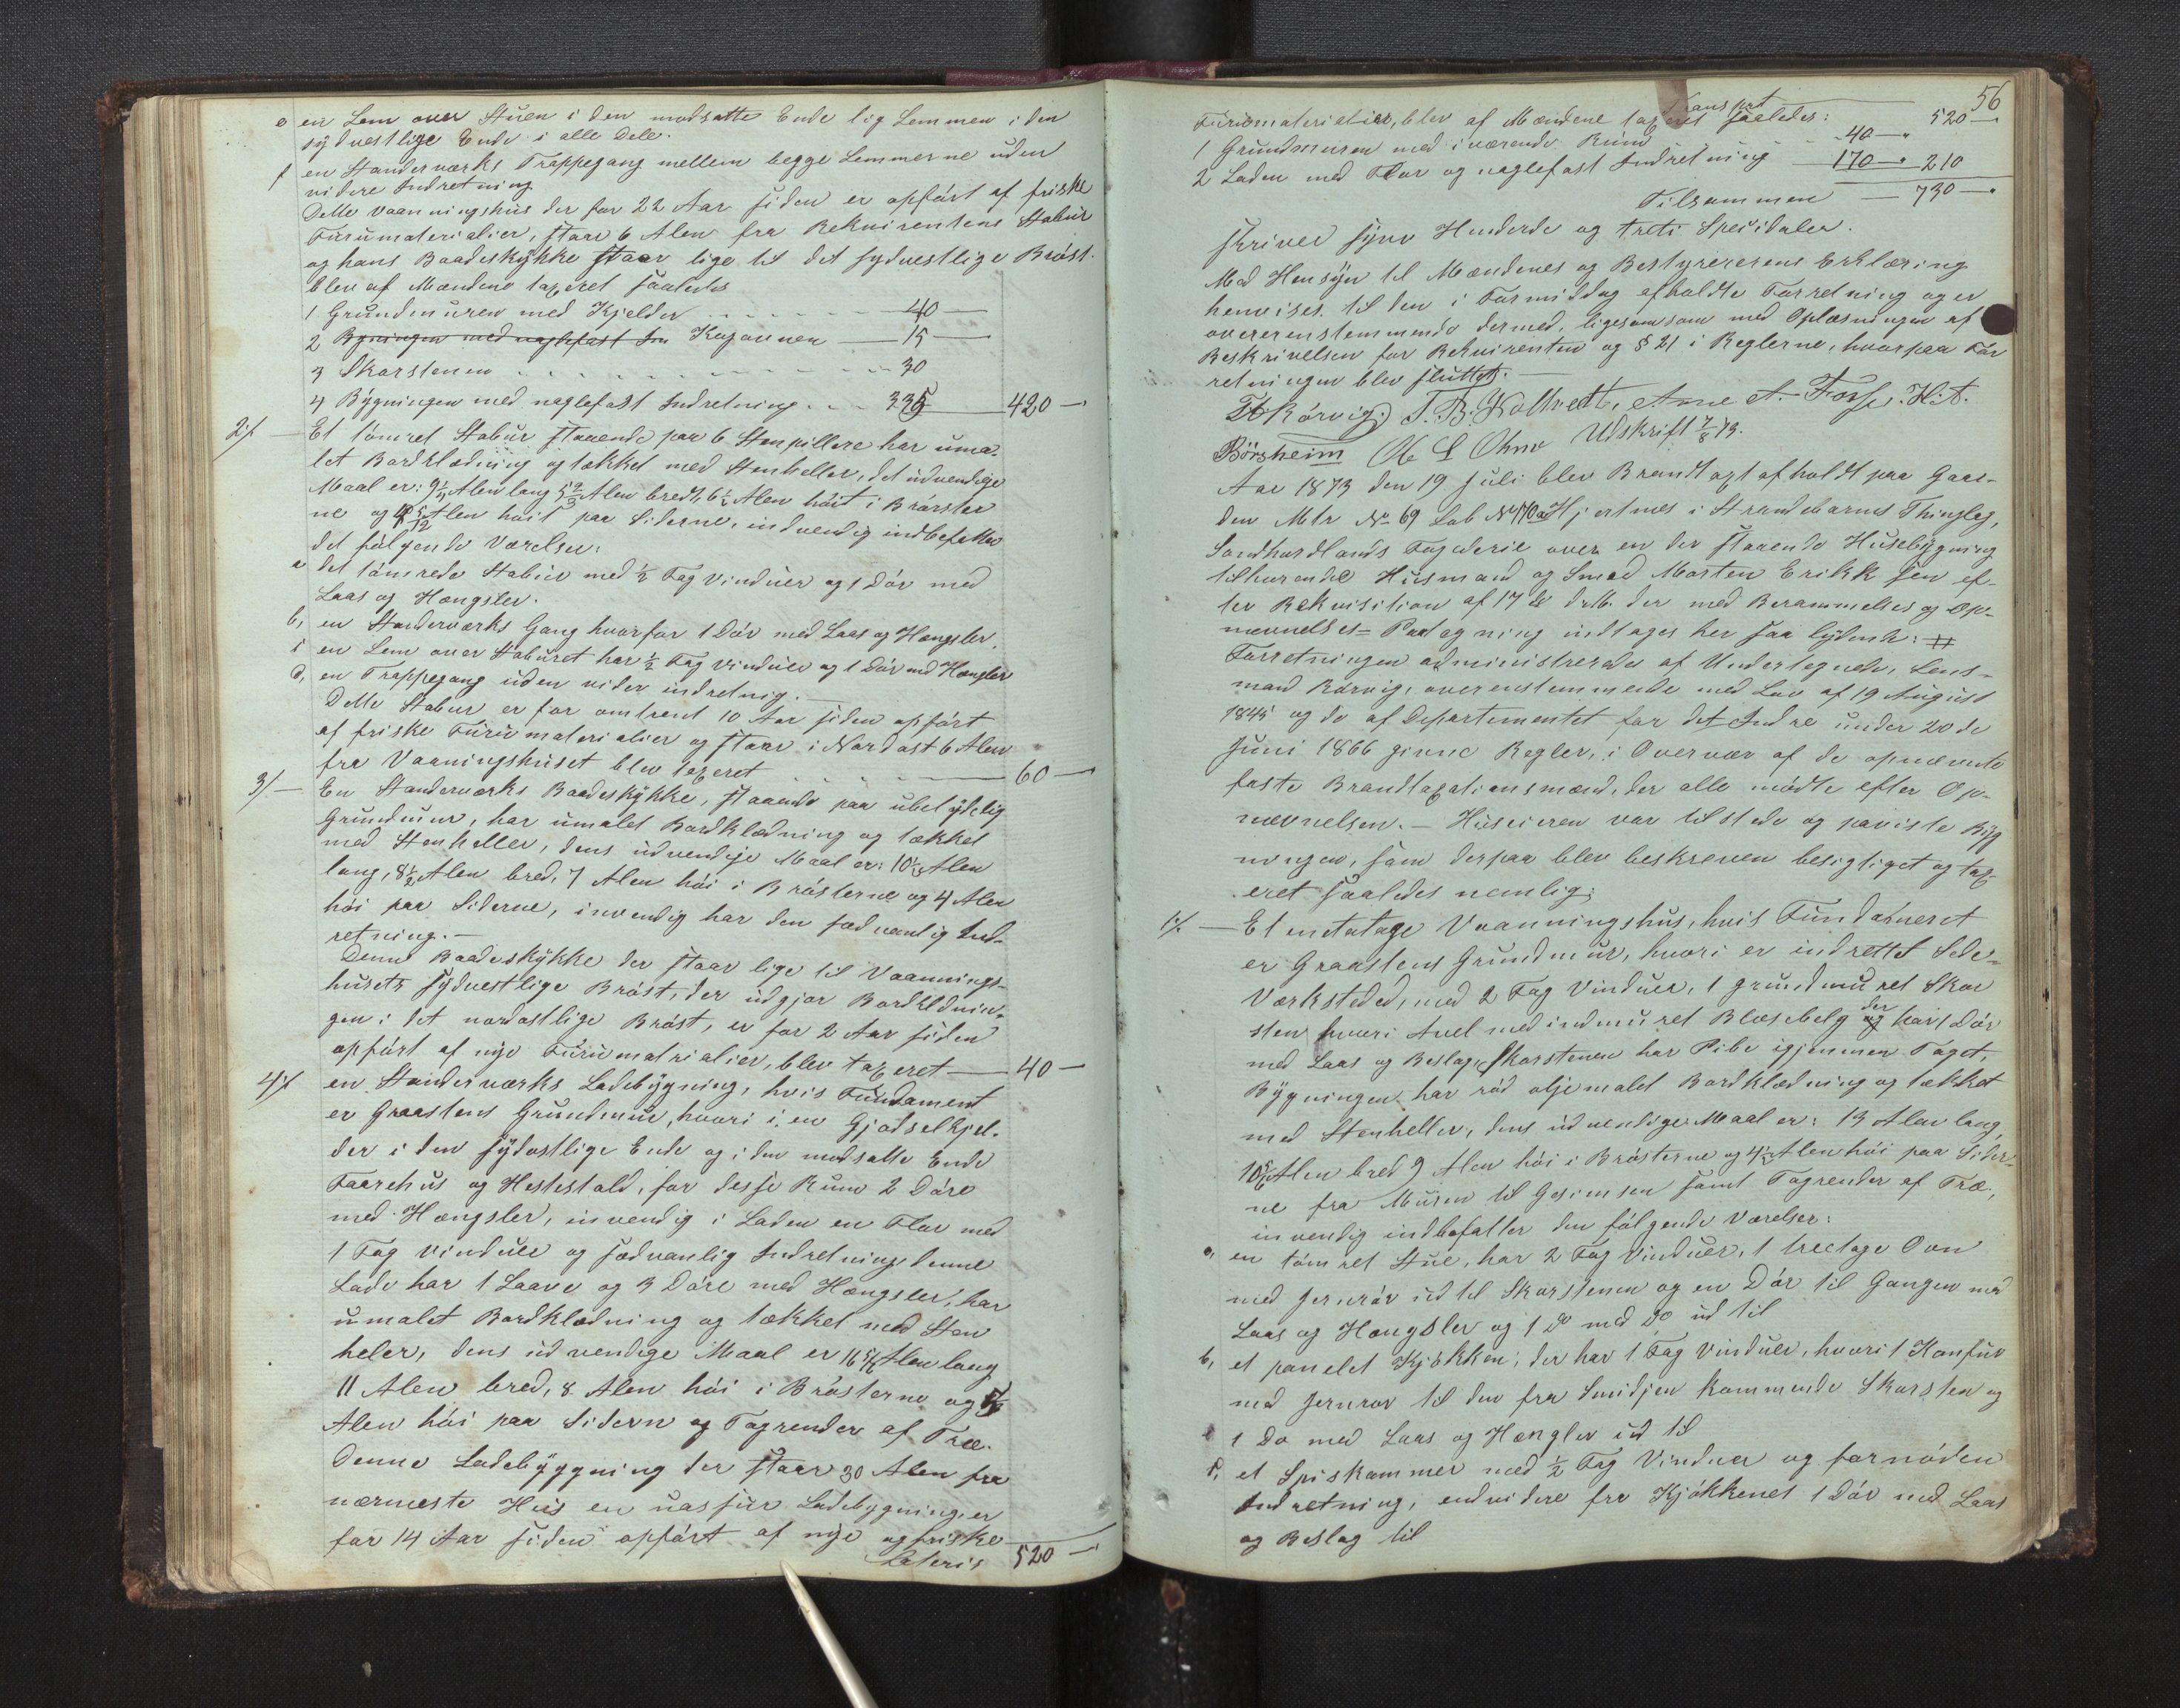 e en Lem over Stuen i den modsatte Ende lig Lemmen i den
sydvestlige Ende i alle Dele.
f en Standerværks Trappegang mellem begge Lemmerne uden
videre Indretning
Dette Vaaningshus der for 22 Aar siden er opført af friske
Furumaterialier, staar 6 Alen fra Rekvirentens Stabur
og hans Baadeskykke staar lige til det sydvestlige Brøst.
blev af Mændene taxeret saaledes
1 Grundmuren med Kjelder 40 —
2 Bygningen med naglefast In Kagovnen — 15 —
3 Skorstenen 30
4 Bygningen med naglefast Indretning 335 420 —
2/. Et tømret Stabur staaende paa 6 Stenpillere har uma-
let Bordklædning og tækket med Stenheller, det udvendige
Maal er: 9 1/4 Alen lang 5 2/3 Alen bredt, 6 1/2 Alen høit i Brøster
ne og 4 5/12 Alen høit paa Siderne, indvendig indbefatter
det følgende Værelser:
a det tømrede Stabur med 1/2 Fag Vinduer og 1 Dør med
Laas og Hængsler.
b, en Standerværks Gang hvorfor 1 Dør med Laas og Hængsler,
c en Lem over Staburet har 1/2 Fag Vinduer og 1 Dør med Hængsler
d, en Trappegang uden vider indretnig.
Dette Stabur er for omtrent 10 Aar siden opført
af friske Furumaterialier og staar i Nordost 6 Alen
fra Vaaningshuset blev taxeret 60 —
3/. En Standerværks Baadeskykke, staaende paa ubetydelig
Grundmur, har umalet Bordklædning og tækket
med Stenheller, dens udvendige Maal er: 10 1/2 Alen
lang, 8 1/2 Alen bred, 7 Alen høi i Brøsterne og 4 Alen
høi paa Siderne, invendig har den sædvanlig Ind-
retning. —
Denne Baadeskykke der staar lige til Vaannings-
husets sydvestlige Brøst, der udgjør Bordkldnin-
gen i det nordostlige Brøst, er for 2 Aar siden
opført af nye Furumatrialier, blev taxeret — 40 —
4/. en Standerværks Ladebygning, hvis Fundament
er Graastens Grundmur, hvori i en Gjødselkjel-
der i den sydostlige Ende og i den modsatte Ende
Faarehus og Hestestald, for desse Rum 2 Døre
med Hængsler, invendig i Laden en Flor med
1 Fag Vinduer og sædvanlig Indretning denne
Lade har 1 Laave og 3 Døre med Hængsler, har
umalet Bordklædning og tækket med Sten
heler, dens udvendige Maal er 16 5/6 Alen lang
11 Alen bred, 8 Alen høi i Brøsterne og 5
Alen høi paa Sidern og Tagrender af Træ.
Denne Ladebyggning der staar 30 Alen fra
nærmeste Hus en Ladebygning, er
for 14 Aar siden opført af nye og friske
Lateris 520 —
56
Transport 520 —
Furumaterialier, blev af Mændene taxeret saaledes:
1 Grundmuren med iværende Rum 40 —
2 Laden med Flor og naglefast Indretning — 170 — 210
Tilsammen — 730 —
skriver syv Hunderde og treti Specidaler.
Med Hensyn til Mændenes og Bestyrerens Erklæring
henvises til den i Formiddag afholdte Forretning og er
overerenstemmende dermed, ligesom som med Oplæsningen af
Beskrivelsen for Rekvirenten og § 21 i Reglerne, hvorpaa For
retningen blev sluttet. —
Rørvig. T. B. Kolltvedt, Arne A. Fosse. H. A.
Børsheim Ole L Udskrift 7/8 73.
Aar 1873 den 19 Juli blev Brandtaxt afholdt paa Gaar-
den Mtr No 69 Lab No 170a Hjertnes i Strandebarms Thinglag,
Søndhordlands Fogderie over en der staaende Husebygning
tilhørende Husmand og Smed Morten Erikk sen ef-
ter Rekvisition af 17 de ds. der med Berammelses og Op-
nævnelses-Paategning indtages her saa lydende:
Forretningen administrerede af Undertegnede, Lens-
mand Rørvig, overenstemmende med Lov af 19 August
1845 og de af Departementet for det Indre under 20 de
Juni 1866 givne Regler, i Overvær af de opnævnte
faste Brandtaxationsmænd, der alle mødte efter Op-
nævnelsen. — Huseieren var tilstede og paviste Byg
ningen, som derpaa blev beskreven besigtiget og tax-
eret saaledes nemlig:
1/. — Et enetatage Vaanningshus, hvis Fundament
er Graastens Grundmur, hvori er indrettet
Værksteded, med 2 Fag Vinduer, 1 grundmuret Skor
sten hvori Avel med indmuret Blæsebelg og der har 1 Dør
med Laas og Beslag, Skorstenen har Pibe igjennem Taget,
Bygningen har rød oljemalet Bordklædning og tækket
med Stenheller, dens udvendige Maal er: 13 Alen lang,
10 5/6 Alen bred 9 Alen høi i Brøsterne og 4 1/2 Alen høi paa Sider-
ne fra Muren til Gesimsen samt Tagrender af Træ,
invendig indbefatter den følgende Værelser:
a, en tømret Stue, har 2 Fag Vinduer, 1 treetage Ovn
med Jernrør ud til Skorstenen og en Dør til Gangen med
Laas og Hængsler og 1 do med do ud til
b, et panelet Kjøkken, der har 1 Fag Vinduer, hvori 1 Komfur
med Jernrør til den fra Smidjen kommende Skorsten og
c 1 Do med Laas og Hængler ud til
d, et Spiskammer med 1/2 Fag Vinduer og fornøden
Indretning, endvidere fra Kjøkkenet 1 Dør med Laas
og Beslag til